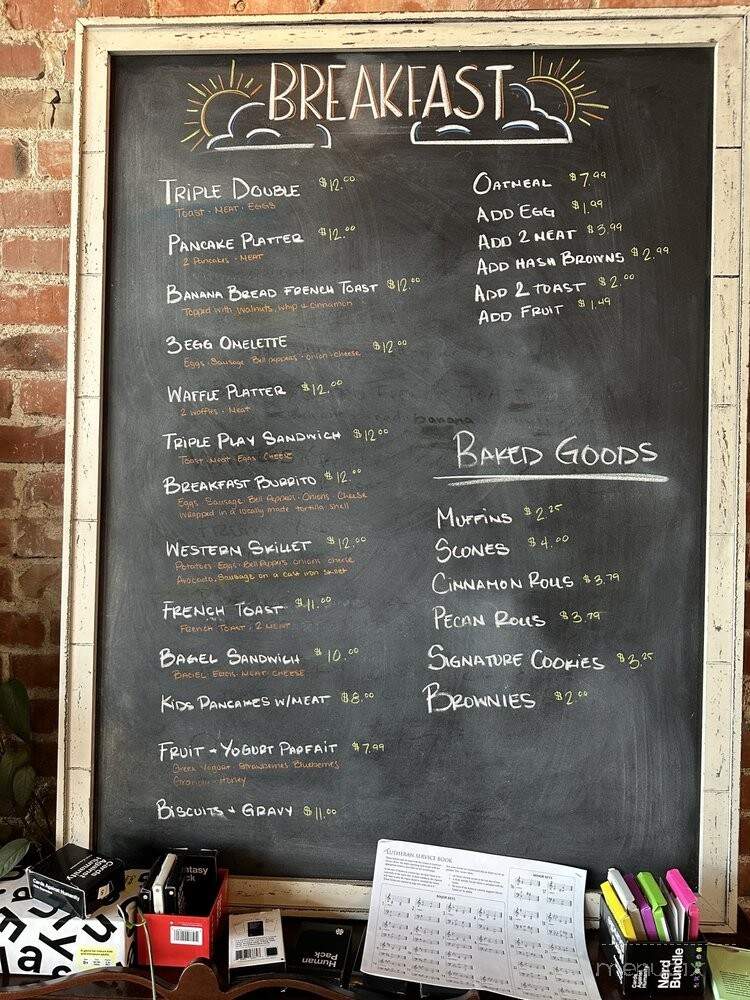 BREAKFAST
TRIPLE DOUBLE $12.00
TOAST · MEAT · EGGS
PANCAKE PLATTER $12.00
2 Pancakes · MEAT
BANANA BREAD FRENCH TOAST $12.00
Topped with walnuts, whip & cinnamon
3 EGG OMELETTE $12.00
Eggs · Sausage · Bell Peppers · onion · cheese
WAFFLE PLATTER $12.00
2 waffles · Meat
TRIPLE PLAY SANDWICH $12.00
TOAST · MEAT · EGGS · CHEESE
BREAKFAST BURRITO $12.00
Eggs · Sausage · Bell Peppers · Onions · Cheese
wrapped in a locally made tortilla shell
WESTERN SKILLET $12.00
Potatoes · Eggs · Bell Peppers · onions · cheese
Avocado, Sausage on a cast iron skillet
FRENCH TOAST $11.00
FRENCH TOAST · 2 MEAT
BAGEL SANDWICH $10.00
BAGEL · EGGS · MEAT · CHEESE
KIDS PANCAKES W/MEAT $8.00
FRUIT + YOGURT PARFAIT $7.99
Greek Yogurt · Strawberries · Blueberries
Granola · Honey
BISCUITS + GRAVY $11.00
OATMEAL $7.99
ADD EGG $1.99
ADD 2 MEAT $3.99
ADD HASH BROWNS $2.99
ADD 2 TOAST $2.00
ADD FRUIT $1.49
banana
BAKED GOODS
MUFFINS $2.25
SCONES $4.00
CINNAMON ROLLS $3.79
PECAN ROLLS $3.79
SIGNATURE COOKIES $3.25
BROWNIES $2.00
LUTHERAN SERVICE BOOK
MAJOR KEYS
MINOR KEYS
Cards Against Humanity
Cards Against Humanity
Fantasy Pack
Human Pack
Nerd Bundle
menupix